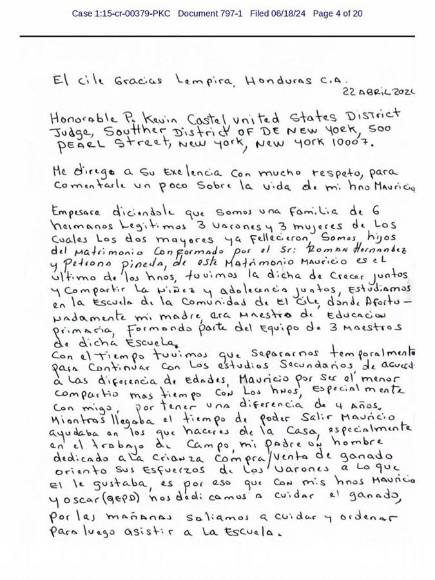 Case 1:15-cr-00379-PKC Document 797-1 Filed 06/18/24 Page 4 of 20
El Cile Gracias Lempira, Honduras C.A.
22 ABRIL 2024
Honorable P. Kevin Castel United States District
Judge, Soutther District OF DE NEW York, 500
PEARL Street, New york, NEW YORK 10007.
Me dirego a Su Exelencia Con mucho respeto, para
Comentarle un poco Sobre la vida de mi hno Mauricio
Empesare diciendole que somos una familia de 6
hermanos Legitimos 3 Varones y 3 mujeres de Los
Cuales Los dos mayores ya Fellecieron. Somos hijos
del Matrimonio Conformado por el Sr: Roman Hernandez
y Petrona Pineda, de este Matrimonio Mauricio es el
ultimo de los hnos, tuvimos la dicha de Crecer juntos
y Compartir La Niñez y adolecencia juntos, Estudiamos
en la Escuela de la Comunidad de El Cile, donde Afortu-
nadamente mi madre, era Maestro de Educacion
primaria, Formando parte del Equipo de 3 Maestros
de dicha Escuela.
Con el Tiempo tuvimos que Separarnos temporalmente
para Continuar con Los estudios Secundarios de acuerd
a Las diferencia de Edades, Mauricio por Ser el menor
Compartio mas tiempo con Los hnos, Especialmente
Con migo, por tener una diferencia de 4 Años.
Mientras llegaba el tiempo de poder Salir Mauricio
ayudaba en los que haceres de la Casa, especialmente
en el trabajo de Campo, mi padre un hombre
dedicado a la Crianza Compra/venta de ganado
oriento Sus Esfuerzos de Los Varones a Lo que
El le gustaba, es por eso que Con mis hnos Mauricio
y oscar (QEPD) nos dedicamos a cuidar el ganado,
por las mañanas saliamos a cuidar y ordeñar
Para luego asistir a La Escuela.